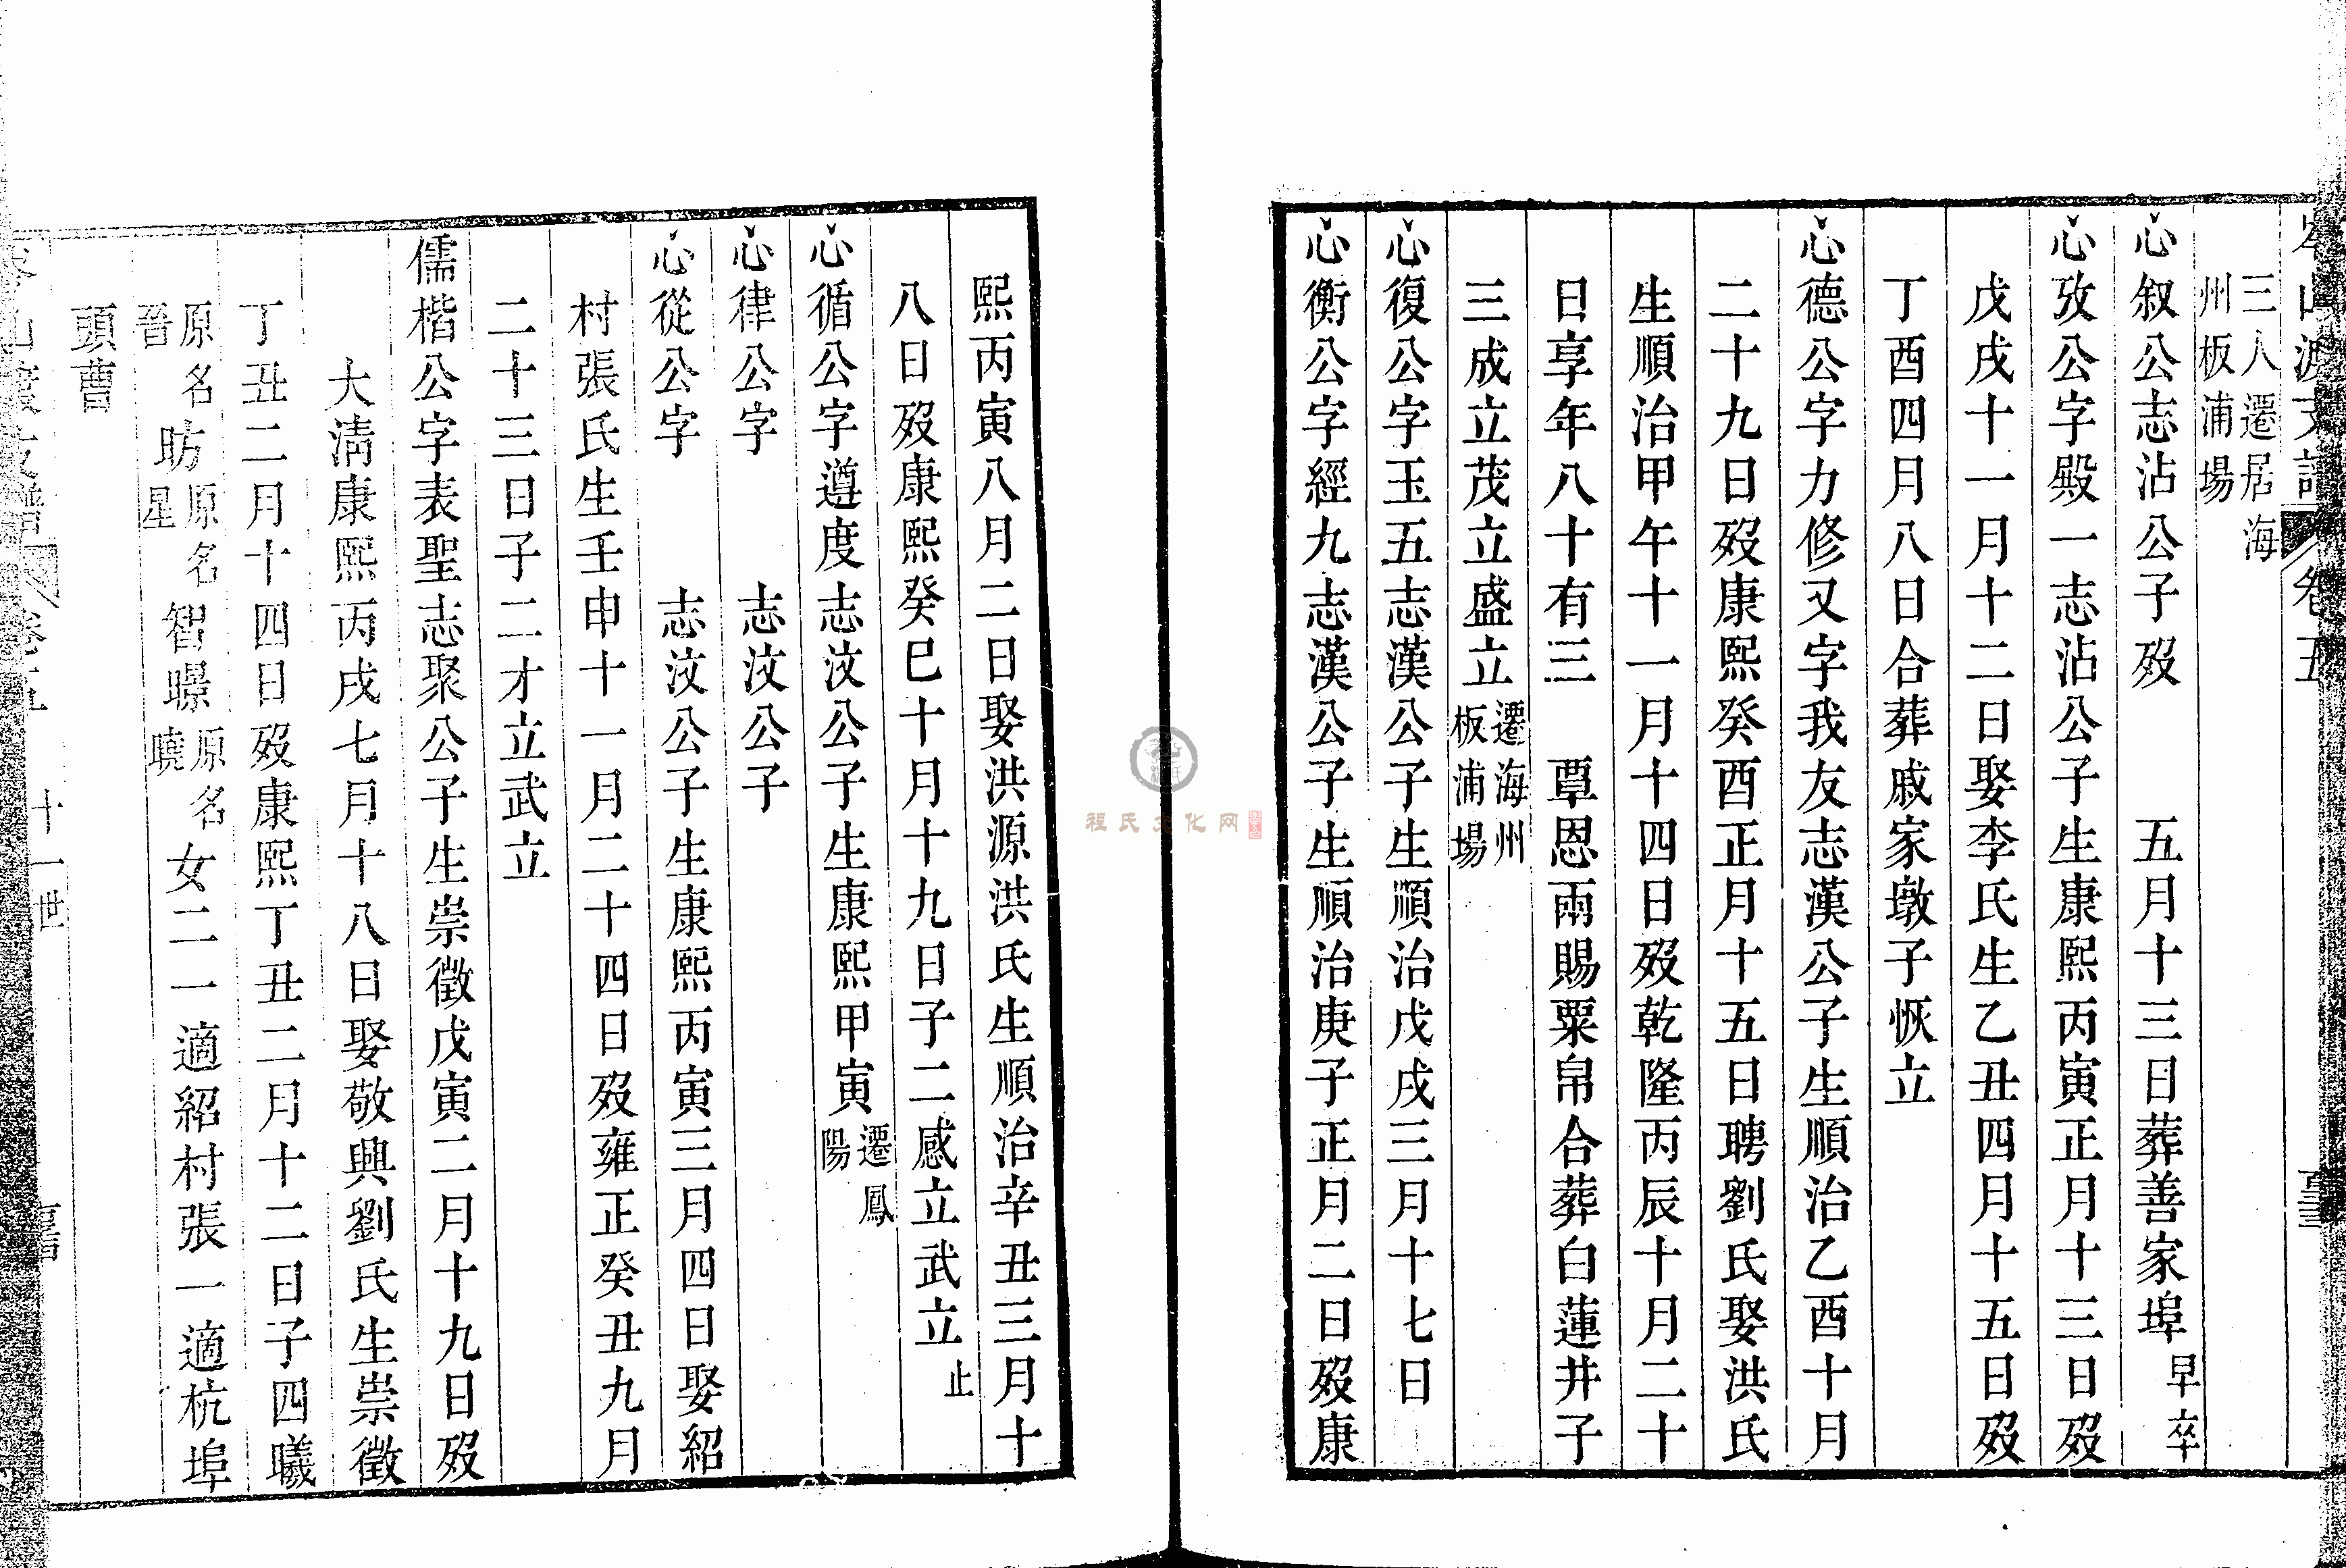 三人遷居海
州板浦場
心叙公志沾公子歿 五月十三日葬善家埠早卒
心攷公字殿一志沾公子生康熙丙寅正月十三日歿
戊戌十一月十二日娶李氏生乙丑四月十五日歿
丁酉四月八日合葬戚家墩子恢立
心德公字力修又字我友志漢公子生順治乙酉十月
二十九日歿康熙癸酉正月十五日聘劉氏娶洪氏
生順治甲午十一月十四日歿乾隆丙辰十月二十
日享年八十有三 覃恩兩賜粟帛合葬白蓮井子
三成立茂立盛立遷海州板浦場
心復公字玉五志漢公子生順治戊戌三月十七日
心衡公字經九志漢公子生順治庚子正月二日歿康
熙丙寅八月二日娶洪源洪氏生順治辛丑三月十
八日歿康熙癸巳十月十九日子二感立武立止
心循公字遵度志汶公子生康熙甲寅遷鳳陽
心律公字 志汶公子
心從公字 志汶公子生康熙丙寅三月四日娶紹
村張氏生壬申十一月二十四日歿雍正癸丑九月
二十三日子二才立武立
儒楷公字表聖志聚公子生崇徵戊寅二月十九日歿
大清康熙丙戌七月十八日娶敬興劉氏生崇徵
丁丑二月十四日歿康熙丁丑二月十二日子四曦
原名晉昉原名星智暻原名曉女二一適紹村張一適杭埠
頭曹
十一世